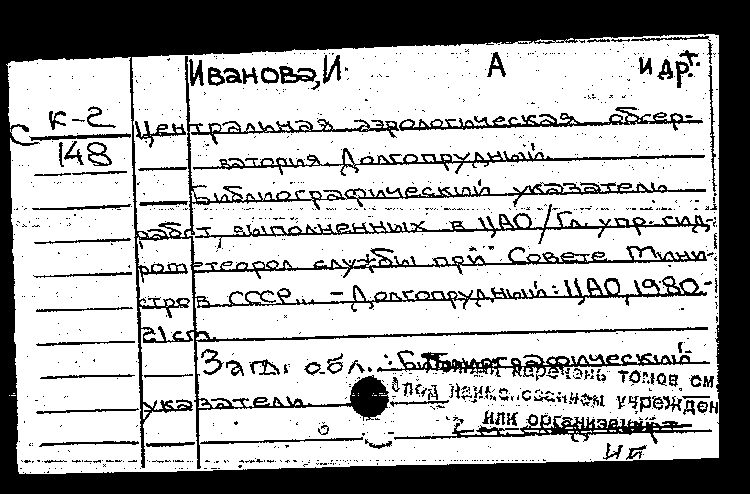 Иванова, И. А и др.
С К-2
148
Центральная аэрологическая обсер-
ватория. Долгопрудный.
Библиографический указатель
работ, выполненных в ЦАО/Гл. упр. гид-
рометеорол службы при Совете Мини-
стров СССР... - Долгопрудный: ЦАО, 1980-
21 см.
Загл. обл.: Библиографический
указатель.
перечень томов см.
под наименованием учрежден
или организации